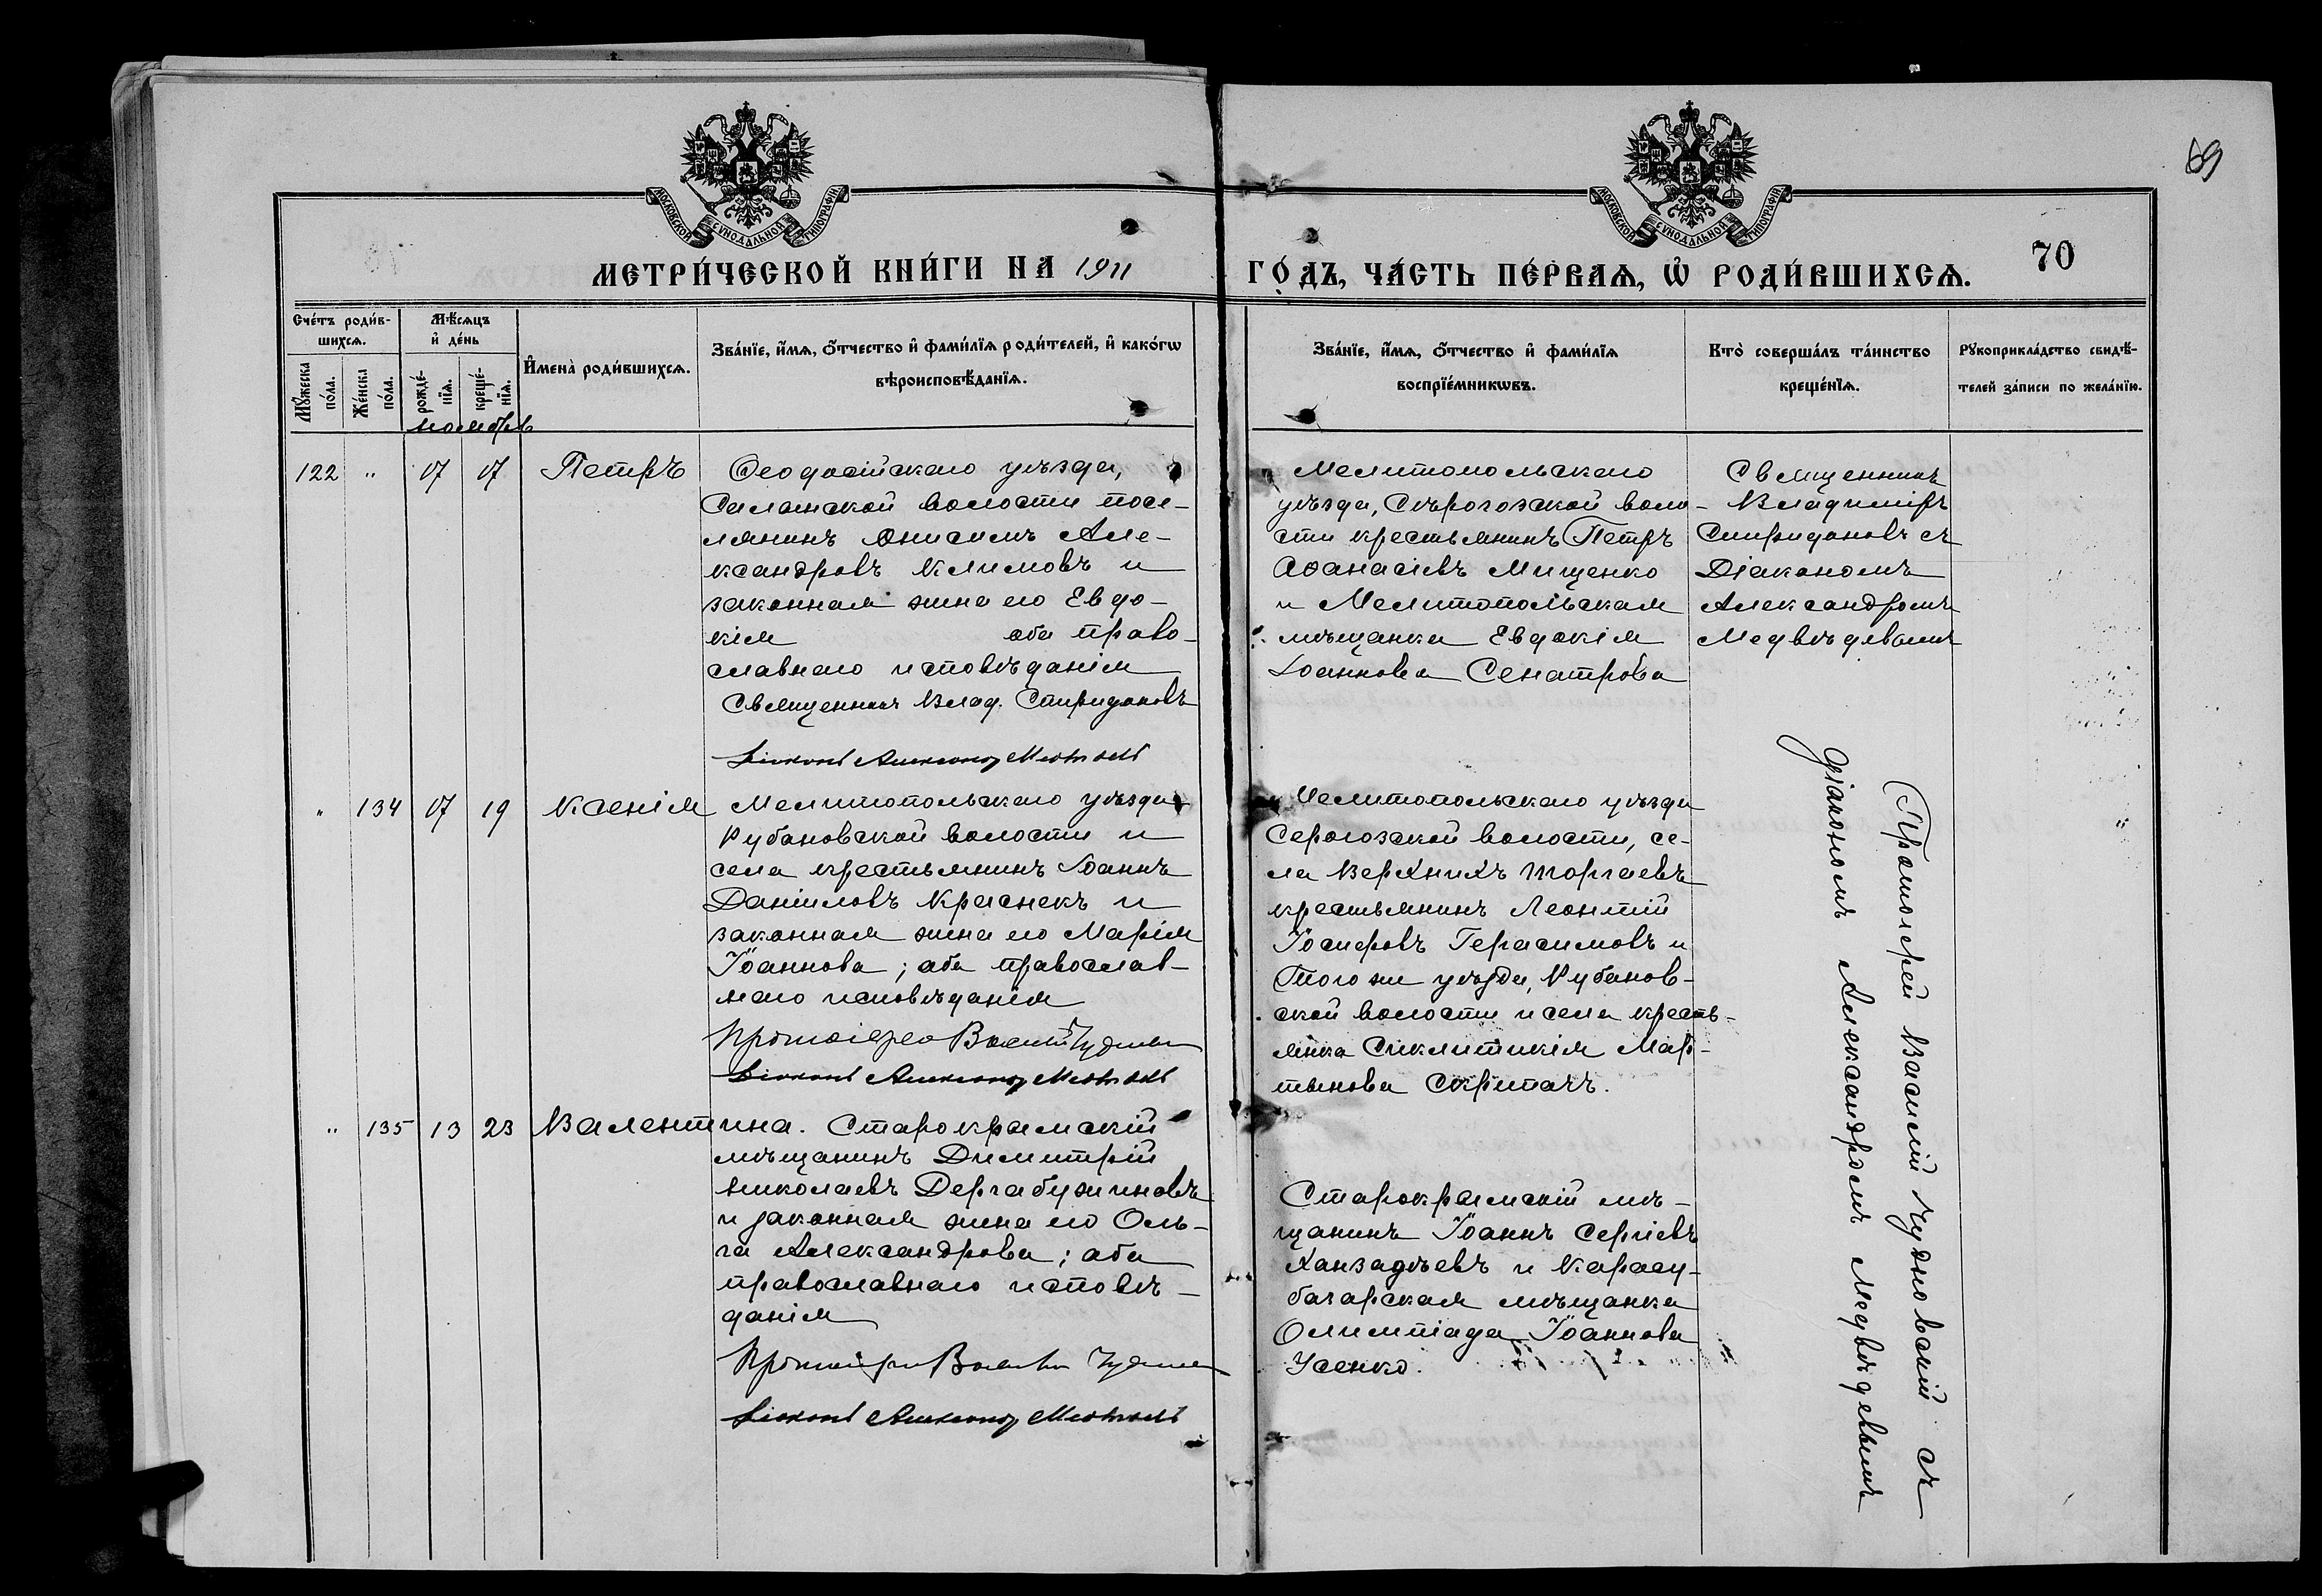 69
МОСКОВСКОЙ СУНОДАЛЬНОЙ ТИПОГРАФІИ
МОСКОВСКОЙ СУНОДАЛЬНОЙ ТИПОГРАФІИ
МЕТРИ́ЧЕСКОЙ КНИ́ГИ НА 1911
ГО́ДЪ, ЧА́СТЬ ПЕ́РВАѦ, Ѡ҆ РОДИ́ВШИХСѦ.
70
Сче́тъ роди́в-
шихсѧ.
Мѣ́сѧцъ
и҆ де́нь
И҆мена̀ роди́вшихсѧ.
Зва́нїе, и҆́мѧ, ѻ҆́тчество и҆ фами́лїѧ роди́телей, и҆ како́гѡ
вѣроисповѣ́данїѧ.
Мꙋ́жеска
по́ла.
Же́нска
по́ла.
рожде́-
нїѧ.
креще́-
нїѧ.
ноября
Зва́нїе, и҆́мѧ, ѻ҆́тчество и҆ фами́лїѧ
воспрїе́мникѡвъ.
Кто̀ соверша́лъ та́инство
креще́нїѧ.
Рꙋкоприкла́дство свидѣ́-
телей за́писи по жела́нїю.
122 " 17 17 Петръ
Ѳеодосійскаго уѣзда,
Салынской волости посе-
лянинъ Онисимъ Але-
ксандровъ Климовъ и
законная жена его Евдо-
кія оба право-
славнаго исповѣданія
Священникъ Влад. Спиридоновъ
Діаконъ Александръ Медвѣдевъ
Мелитопольскаго
уѣзда, Сѣрогозской воло-
сти крестьянинъ Петръ
Аѳанасіевъ Мищенко
и Мелитопольская
мѣщанка Евдокія
Іоаннова Сенатрова
Священникъ
Владиміръ
Спиридоновъ съ
Діакономъ
Александромъ
Медвѣдевымъ
" 134 17 19 Ксенія
Мелитопольскаго уѣзда
Рубановской волости и
села крестьянинъ Іоаннъ
Даніиловъ Краснекъ и
законная жена его Марія
Іоаннова; оба православ-
наго исповѣданія
Протоіерей Василій Чудновскій
Діаконъ Александръ Медвѣдевъ
Мелитопольскаго уѣзда
Серогозской волости, се-
ла Верхнихъ Торгаевъ
крестьянинъ Леонтій
Іосифовъ Герасимовъ и
Того же уѣзда, Рубанов-
ской волости и села кресть-
янка Сиклитикія Мар-
тынова Скрипачъ.
Протоіерей Василій Чудновскій съ
діакономъ Александромъ Медвѣдевымъ
" 135 13 23 Валентина.
Старокрымскій
мѣщанинъ Димитрій
Николаевъ Дергабужиновъ
и законная жена его Оль-
га Александрова; оба
православнаго исповѣ-
данія
Протоіерей Василій Чудновскій
Діаконъ Александръ Медвѣдевъ
Старокрымскій мѣ-
щанинъ Іоаннъ Сергіевъ
Ханзадѣевъ и Карасу-
базарская мѣщанка
Олимпіада Іоаннова
Усенко.